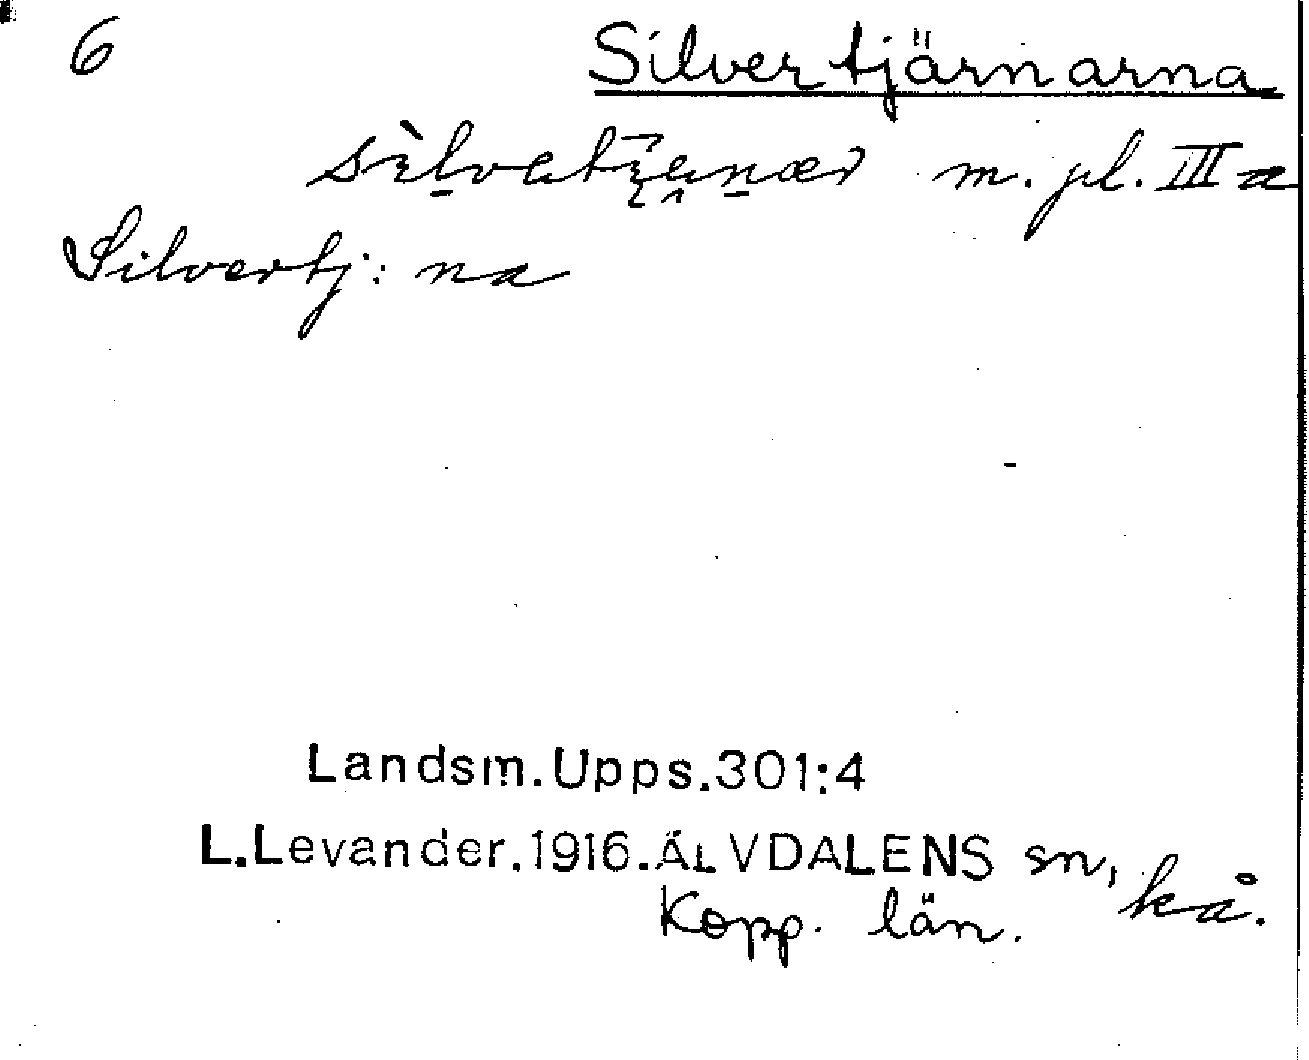 6 Silvertjärnarna
m. pl. III a
Silvertj:na
Landsm.Upps.301:4
L.Levander.1916.ÄLVDALENS sn, kå.
Kopp. län.